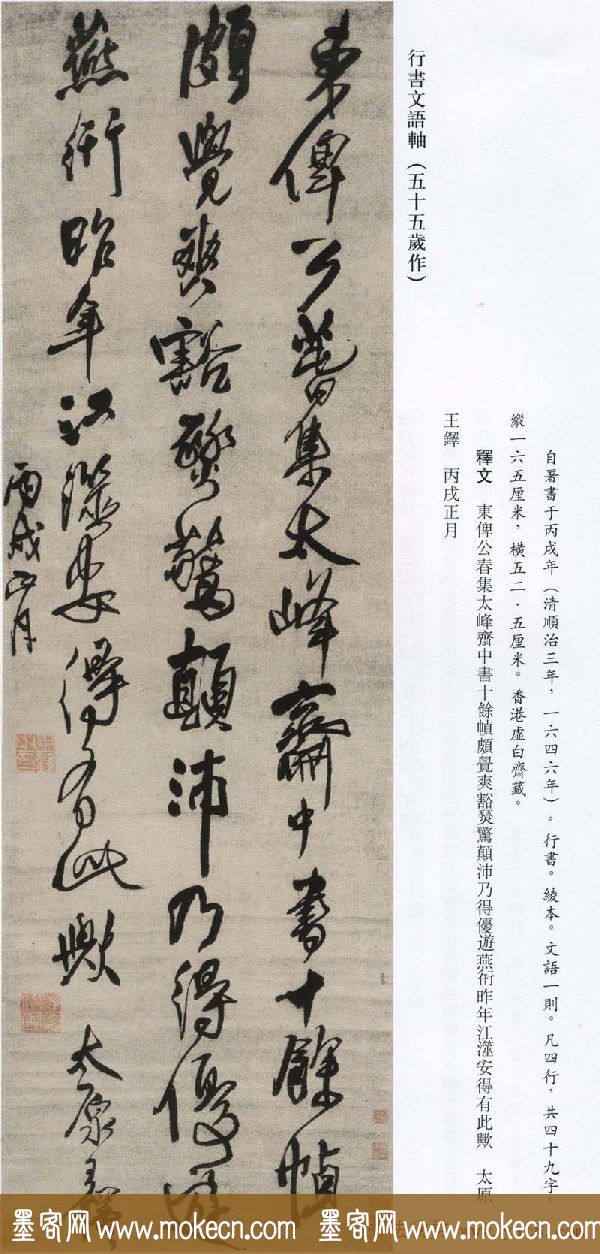 行書文語軸（五十五歲作）
自暑書于丙戌年（清順治三年，一六四六年）。行書。綾本。文語一則。凡四行，共四十九字。
縱一六五厘米，橫五二·五厘米。香港虛白齊藏。
釋文 東俾公春集太峰齊中書十餘幀頗覺爽豁煢驚顛沛乃得優遊燕衎昨年江澨安得有此歟 太原
王鐸 丙戌正月
東俾公春集太峰齋中書十餘幀
頗覺爽豁煢驚顛沛乃得優遊
燕衎昨年江澨安得有此歟 太原王鐸
丙戌正月
墨客网 www.mokecn.com 墨客网 www.mokecn.com